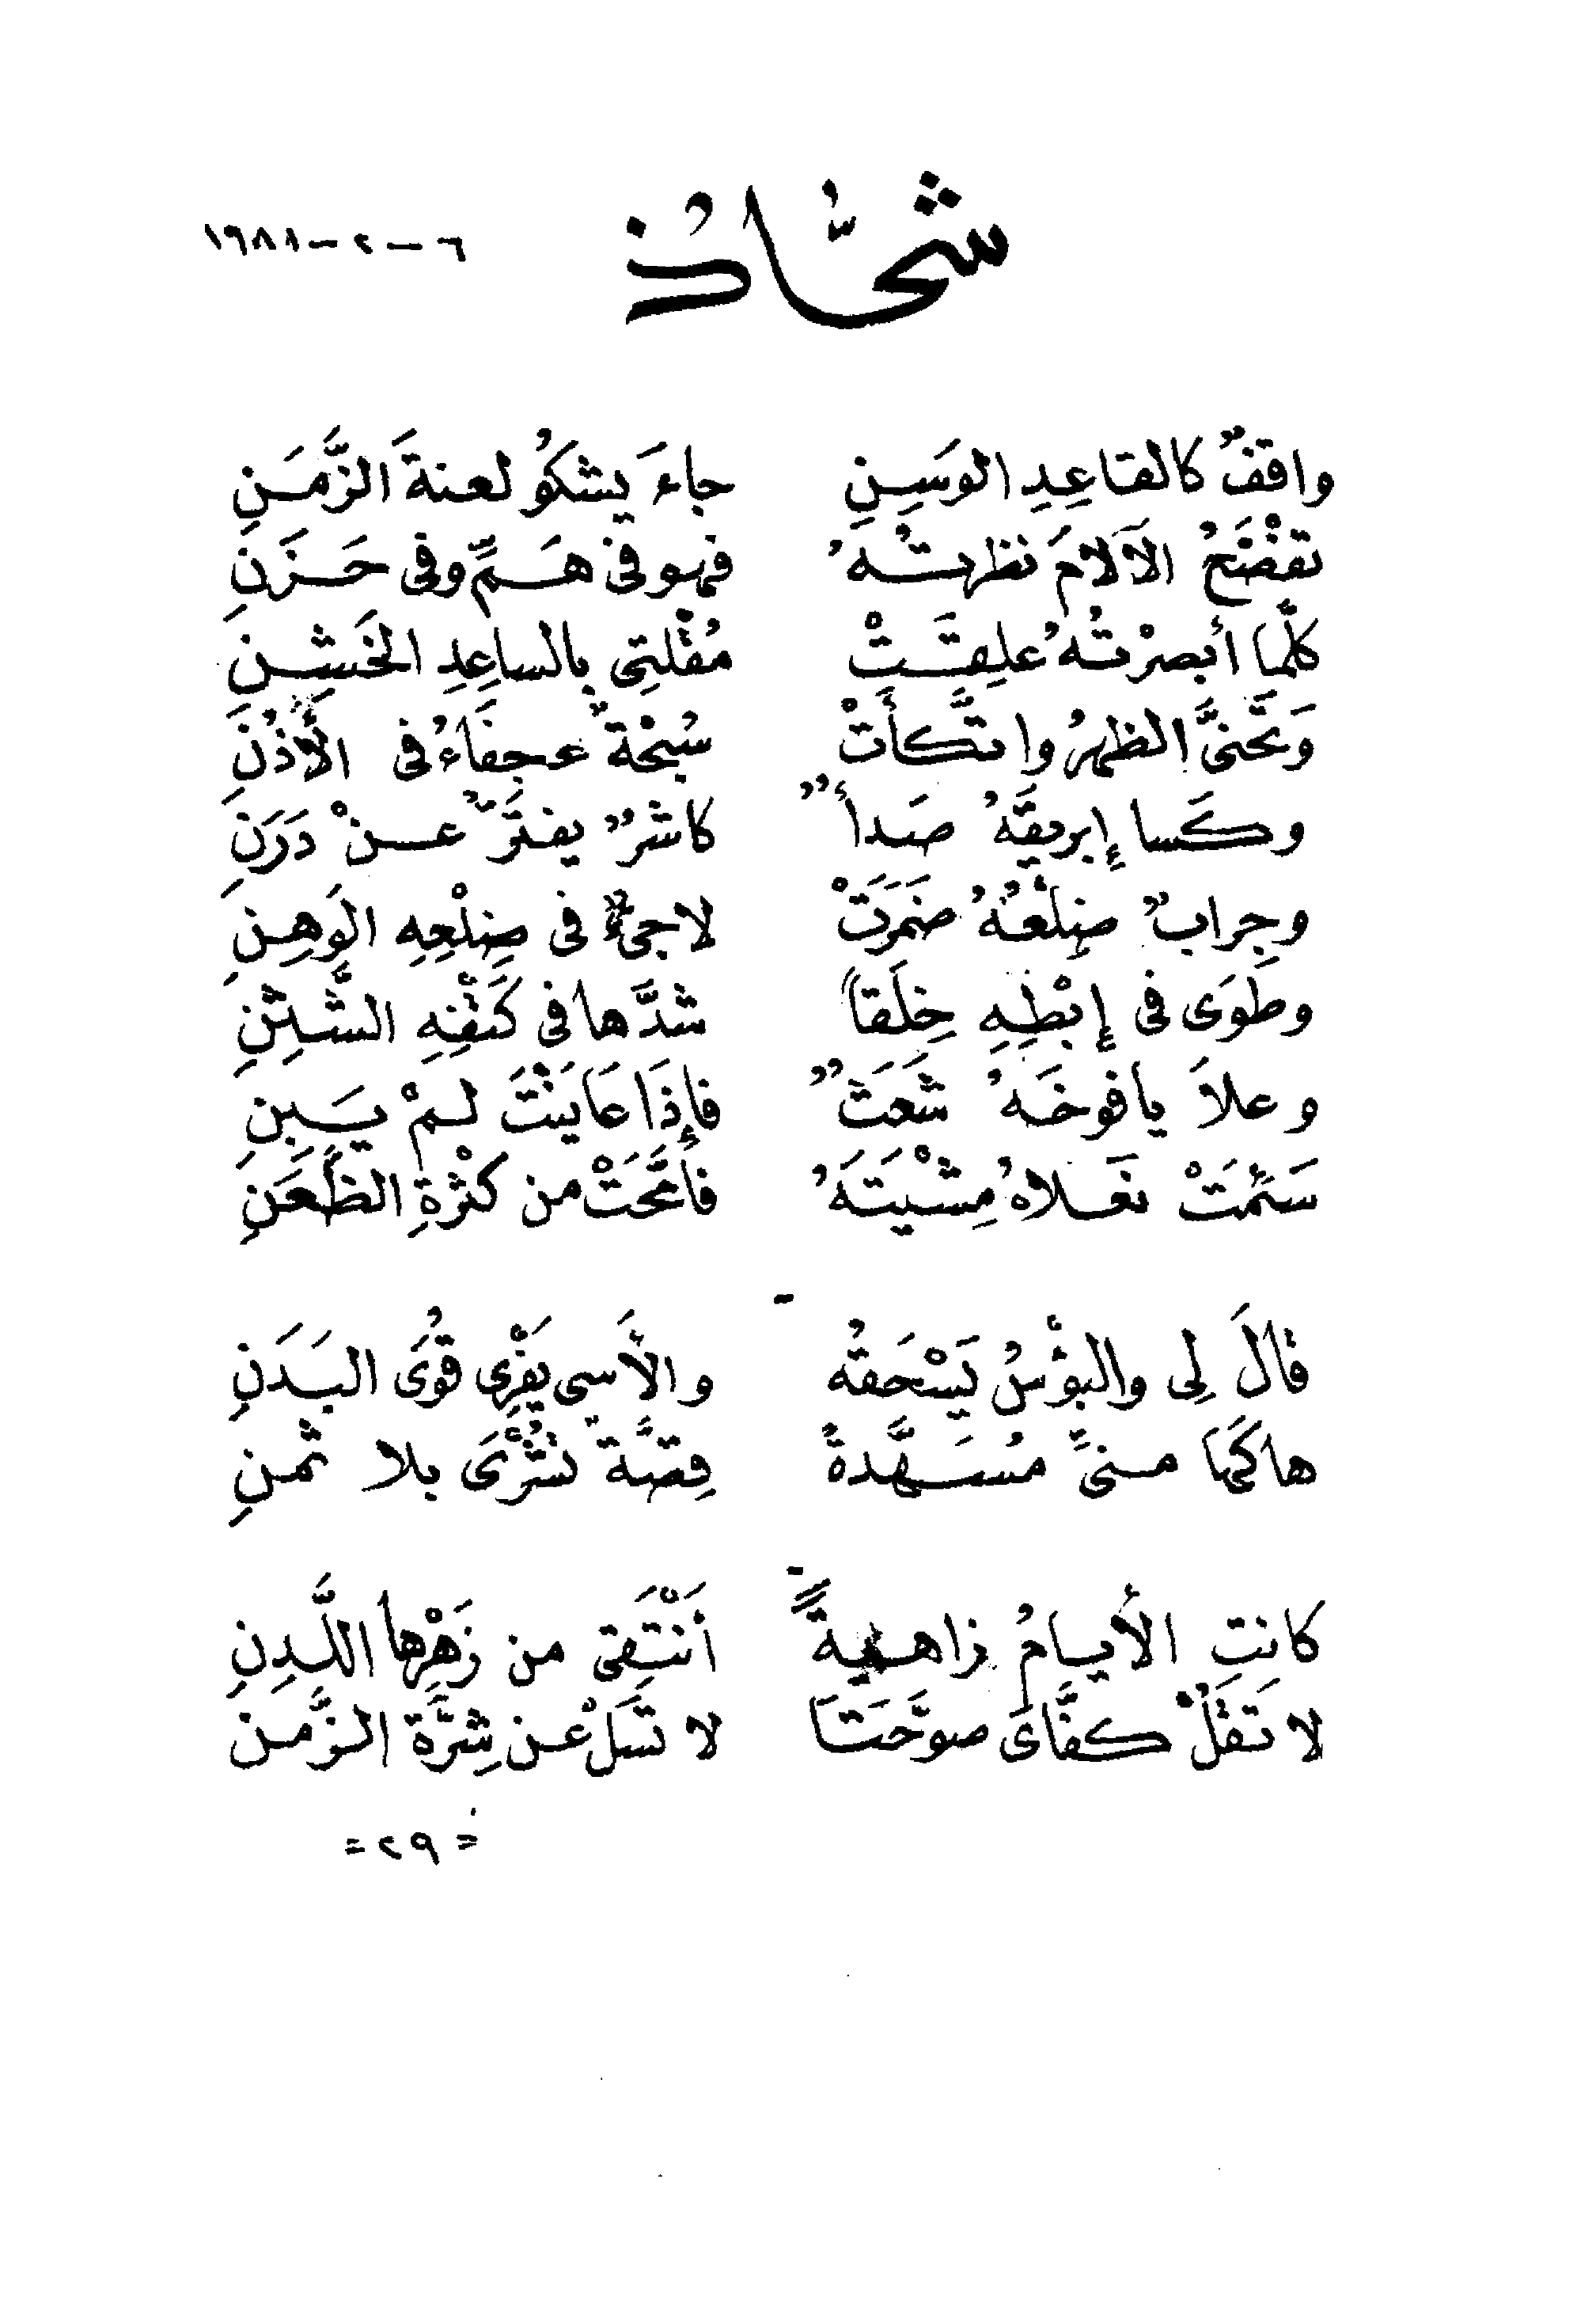 شحَّاذُ
٦-٢-١٩٨٨
واقفٌ كالقاعِدِ الوَسِنِ جاءَ يشكُو لعنةَ الزَّمَنِ
تفْضَحُ الآلامَ نظرتُهُ فهو في هَمٍّ وفي حَزَنِ
كلَّما أبصرْتُهُ علِقَتْ مُقْلتِي بالساعِدِ الخَشِنِ
وَتَحنىَّ الظهرُ واتَّكأَتْ سُبْحْةٌ عجفَاءُ في الأُذُنِ
وكَسا إبريقَهُ صَدأٌ كاشرٌ يفتَرُّ عنْ دَرَنِ
وجِرابٌ ضِلْعُهُ ضَمَرَتْ لاجىءٌ في ضِلْعِهِ الوَهِنِ
وطَوَى في إِبْطِهِ خِلَقاً شدَّها في كَتْفِهِ الشَّثِنِ
وعلاَ يافوخَهُ شَعَثٌ فإِذَا عَايَنْتَ لمْ يَبِنِ
سَئمَتْ نَعلاهُ مِشْيَتَهُ فامَّحَتْ من كثْرةِ الظَّعَنِ
قالَ لِي والبؤْسُ يَسْحَقُه والأَسي يَفْرِي قُوَى البَدَنِ
هاكَها منىِّ مُسَهَّدةً قِصَّةٌ تُشْرَى بلا ثمنِ
كانتِ الأيامُ زاهيةً أنْتَقِى من زَهْرِها اللَّدِنِ
لا تَقُلْ كفَّاىَ صوَّحَتَا لا تَسَلْ عن شِرَّةِ الزَّمن
= ٢٩ =